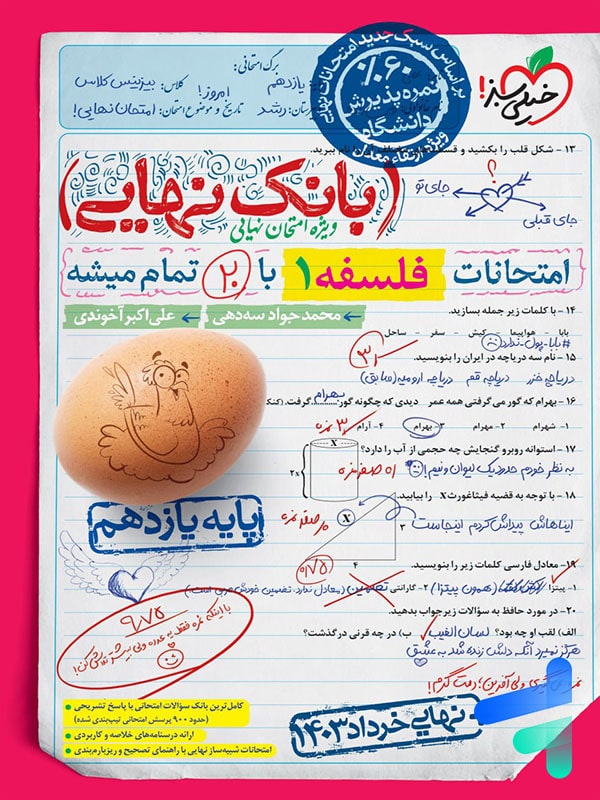 خیلی سبز!
برگ امتحانی:
یازدهم
کلاس: بیزینس کلاس
امروز!
رشد
تاریخ و موضوع امتحان: امتحان نهایی!
براساس سبک جدید امتحانات نهایی
۶۰٪
نمره پذیرش
دانشگاه
ویژه ارتقاء معدل
۱۳ - شکل قلب را بکشید و
نام ببرید.
؟
جای تو
جای قبلی
(بانک نهایی)
ویژه امتحان نهایی
امتحانات فلسفه ۱ با ۲۰ تمام میشه
محمدجواد سه‌دهی
علی‌اکبر آخوندی
۱۴ - با کلمات زیر جمله بسازید.
بابا - هواپیما - کیش - سفر - ساحل
#بابا_پول_ندارد
۱۵ - نام سه دریاچه در ایران را بنویسید.
دریاچه خزر دریاچه قم دریاچه ارومیه (سابق)
۱۶ - بهرام که گور می‌گرفتی همه عمر دیدی که چگونه گور بهرام گرفت.
۱- شهرام ۲- مهرام ۳- بهرام ۴- آرام
۱۷ - استوانه روبرو گنجایش چه حجمی از آب را دارد؟
به نظر خودم حدود یک لیوان و نیم!
X
2X
۱۸ - با توجه به قضیه فیثاغورث X را بیابید.
ایناهاش پیداش کردم اینجاست
X
۳
۴
پایه یازدهم
۱۹ - معادل فارسی کلمات زیر را بنویسید.
۱- پیتزا
(همون پیتزا) ۲- گارانتی تضمین (معادل ندارد، تضمین خودش عربی است)
۲۰ - در مورد حافظ به سؤالات زیر جواب بدهید.
الف) لقب او چه بود؟ لسان الغیب ب) در چه قرنی درگذشت؟
هرگز نمیرد آنکه دلش زنده شد به عشق
آفرین! دمت گرم!
۹/۷۵
کامل‌ترین بانک سؤالات امتحانی با پاسخ تشریحی
(حدود ۹۰۰ پرسش امتحانی تیپ‌بندی شده)
ارائه درسنامه‌های خلاصه و کاربردی
امتحانات شبیه‌ساز نهایی با راهنمای تصحیح و ریزبارم‌بندی
نهایی خرداد ۱۴۰۳